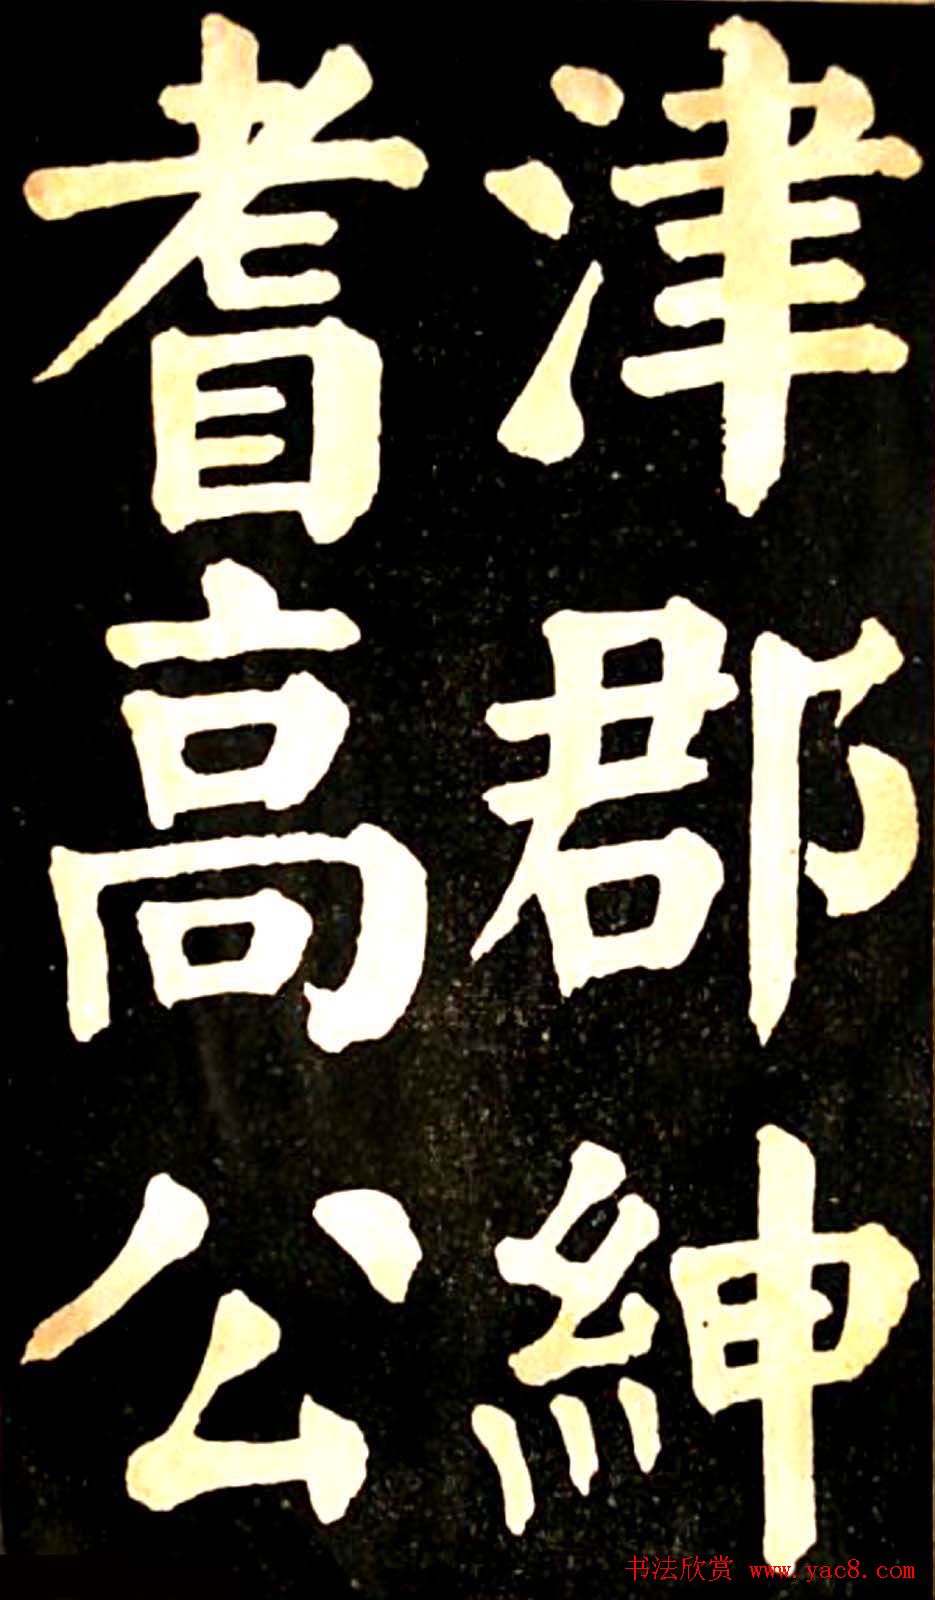 津郡紳
耆高公
书法欣赏 www.yac8.com